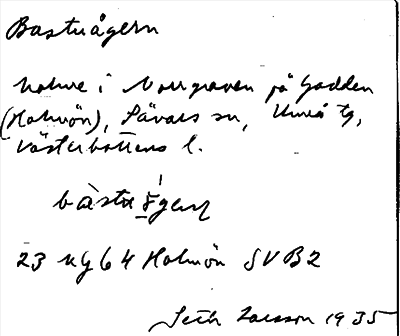 Bastuågern
holme i Norrgraven på Gadden
(Holmön), Sävars sn, Umeå tg,
Västerbottens l.
23 Ng 64 Holmön SV B2
Seth Larsson 1935